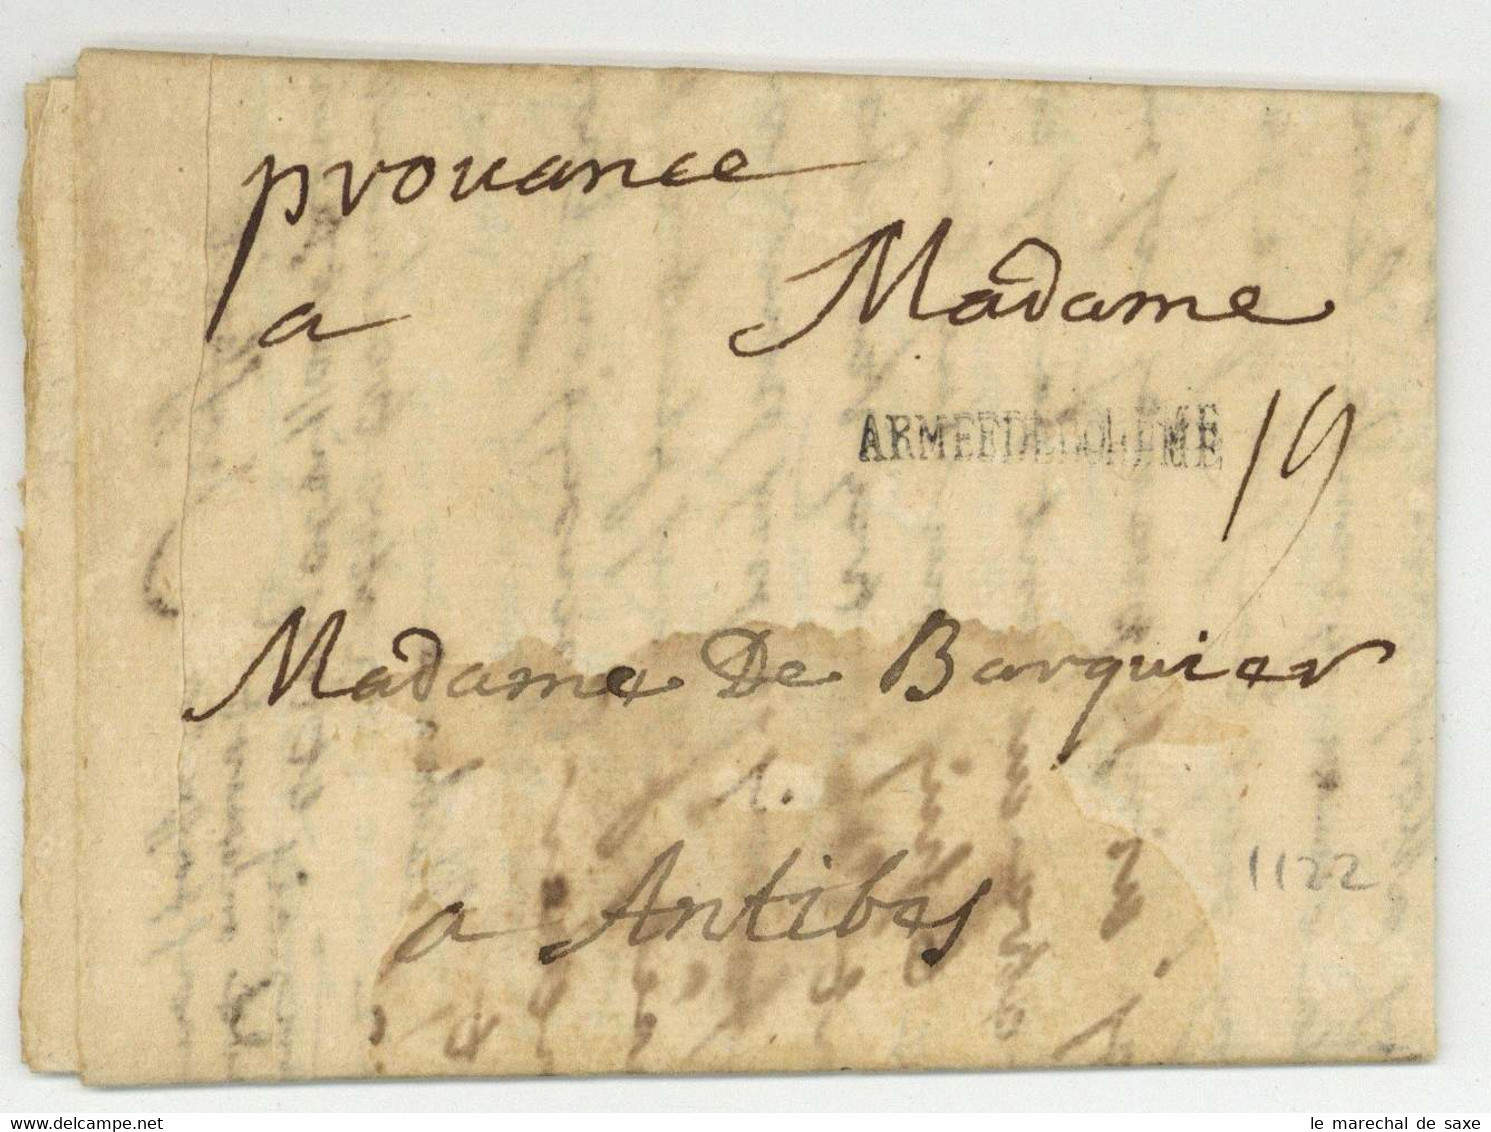 prouance
a Madame
ARMEEDEBOHEME
19
Madame De Barquier
a Antibes
1122
le marechal de saxe